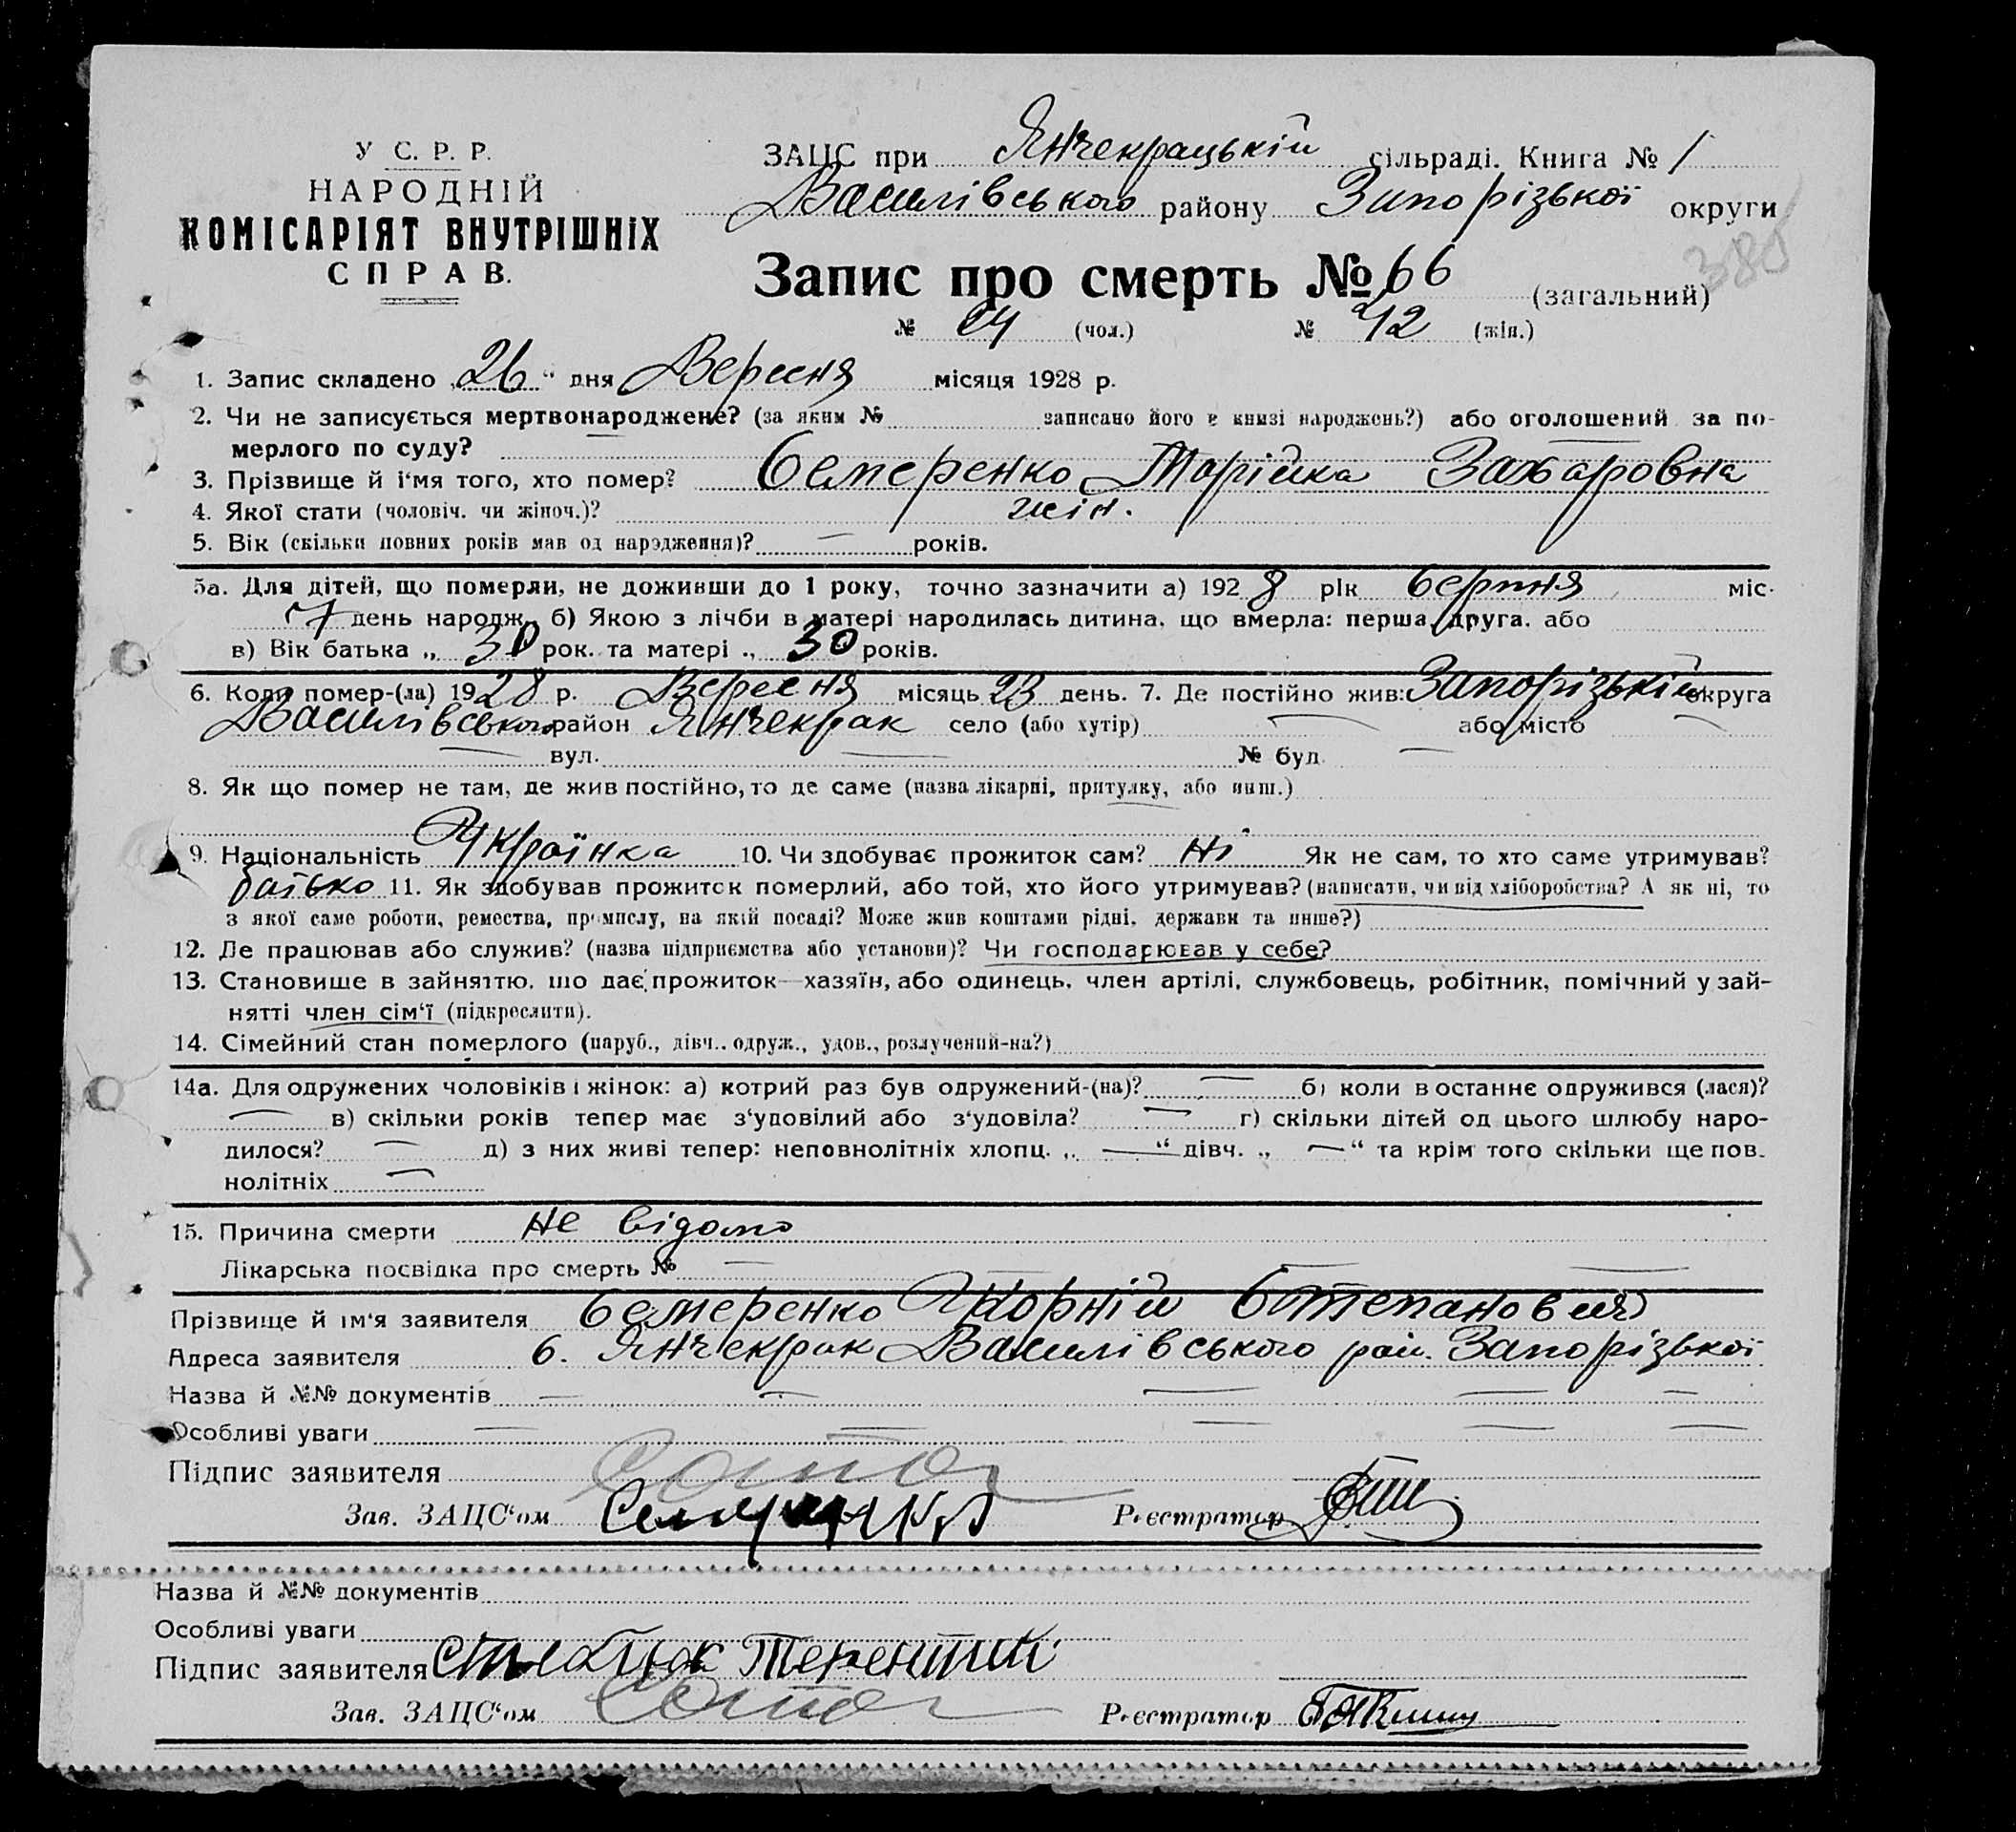 У С. Р. Р.
НАРОДНІЙ
КОМІСАРІЯТ ВНУТРІШНІХ
СПРАВ.
ЗАЦС при Янчекрацькій сільраді. Книга № 1
Василівського району Запорізької округи
380
Запис про смерть № 66 (загальний)
№ (чол.) № 42 (жін.)
1. Запис складено „26“ дня Вересня місяця 1928 р.
2. Чи не записується мертвонароджене? (за яким № записано його в книзі народжень?) або оголошений за по-
мерлого по суду?
3. Прізвище й і'мя того, хто помер? Семеренко Марійка Захаровна
4. Якої стати (чоловіч. чи жіноч.)? жін.
5. Вік (скільки повних років мав од народження)? — років.
5а. Для дітей, що померли, не доживши до 1 року, точно зазначити а) 1928 рік Серпня міс.
7 день народж. б) Якою з лічби в матері народилась дитина, що вмерла: перша, друга, або
в) Вік батька „ 30 рок. та матері „ 30 років.
6. Коли помер-(ла) 1928 р. Вересня місяць 23 день. 7. Де постійно жив: Запорізькій округа
Василівського район Янчекрак село (або хутір) — або місто —
— вул. — № буд. —
8. Як що помер не там, де жив постійно, то де саме (назва лікарні, притулку, або инш.)
9. Національність Українка 10. Чи здобуває прожиток сам? Ні Як не сам, то хто саме утримував?
батько 11. Як здобував прожиток померлий, або той, хто його утримував? (написати, чи від хліборобства? А як ні, то
з якої саме роботи, ремества, промислу, на якій посаді? Може жив коштами рідні, держави та инше?)
12. Де працював або служив? (назва підприємства або установи)? Чи господарював у себе?
13. Становище в зайняттю, що дає прожиток—хазяїн, або одинець, член артілі, службовець, робітник, помічний у зай-
нятті член сім'ї (підкреслити).
14. Сімейний стан померлого (паруб., дівч., одруж., удов., розлучений-на?)
14а. Для одружених чоловіків і жінок: а) котрий раз був одружений-(на)? — б) коли в останнє одружився (лася)?
— в) скільки років тепер має з'удовілий або з'удовіла? — г) скільки дітей од цього шлюбу наро-
дилося? — д) з них живі тепер: неповнолітніх хлопц. „ —“ дівч. „ —“ та крім того скільки ще пов.
нолітніх —
15. Причина смерти не відомо
Лікарська посвідка про смерть № —
Прізвище й ім'я заявителя Семеренко Корній Степанович
Адреса заявителя с. Янчекрак Василівського рай. Запорізької
Назва й №№ документів — — — — —
Особливі уваги — — — — —
Підпис заявителя
Зав. ЗАЦС'ом Реєстратор
Назва й №№ документів
Особливі уваги
Підпис заявителя Терентий
Зав. ЗАЦС'ом Реєстратор